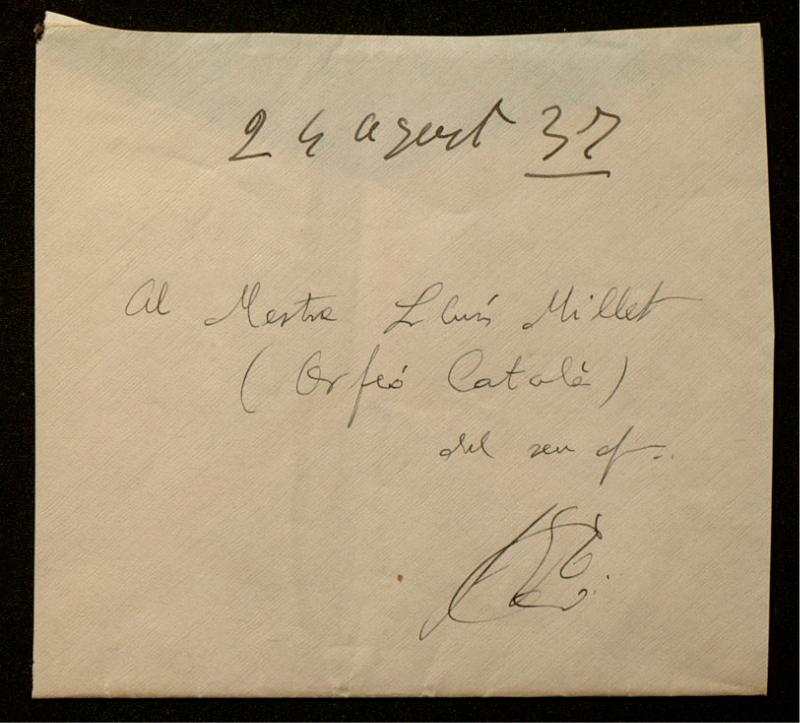 24 agost 37
Al Mestre Lluís Millet
(Orfeó Català)
del seu af.